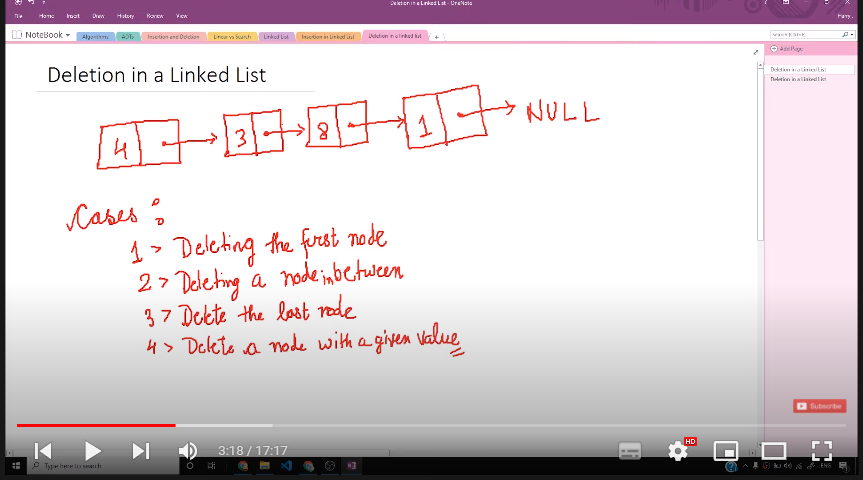 Deletion in a Linked List - OneNote
File Home Insert Draw History Review View
Harry
NoteBook Algorithms ADTs Insertion and Deletion Linear vs Search Linked List Insertion in Linked List Deletion in a Linked list
Search (Ctrl+E)
Add Page
Deletion in a Linked List
Deletion in a Linked List
Deletion in a Linked List
4 3 8 1 NULL
Cases :
1 > Deleting the first node
2 > Deleting a node in between
3 > Delete the last node
4 > Delete a node with a given value
Subscribe
3:18 / 17:17
HD
Type here to search
ENG